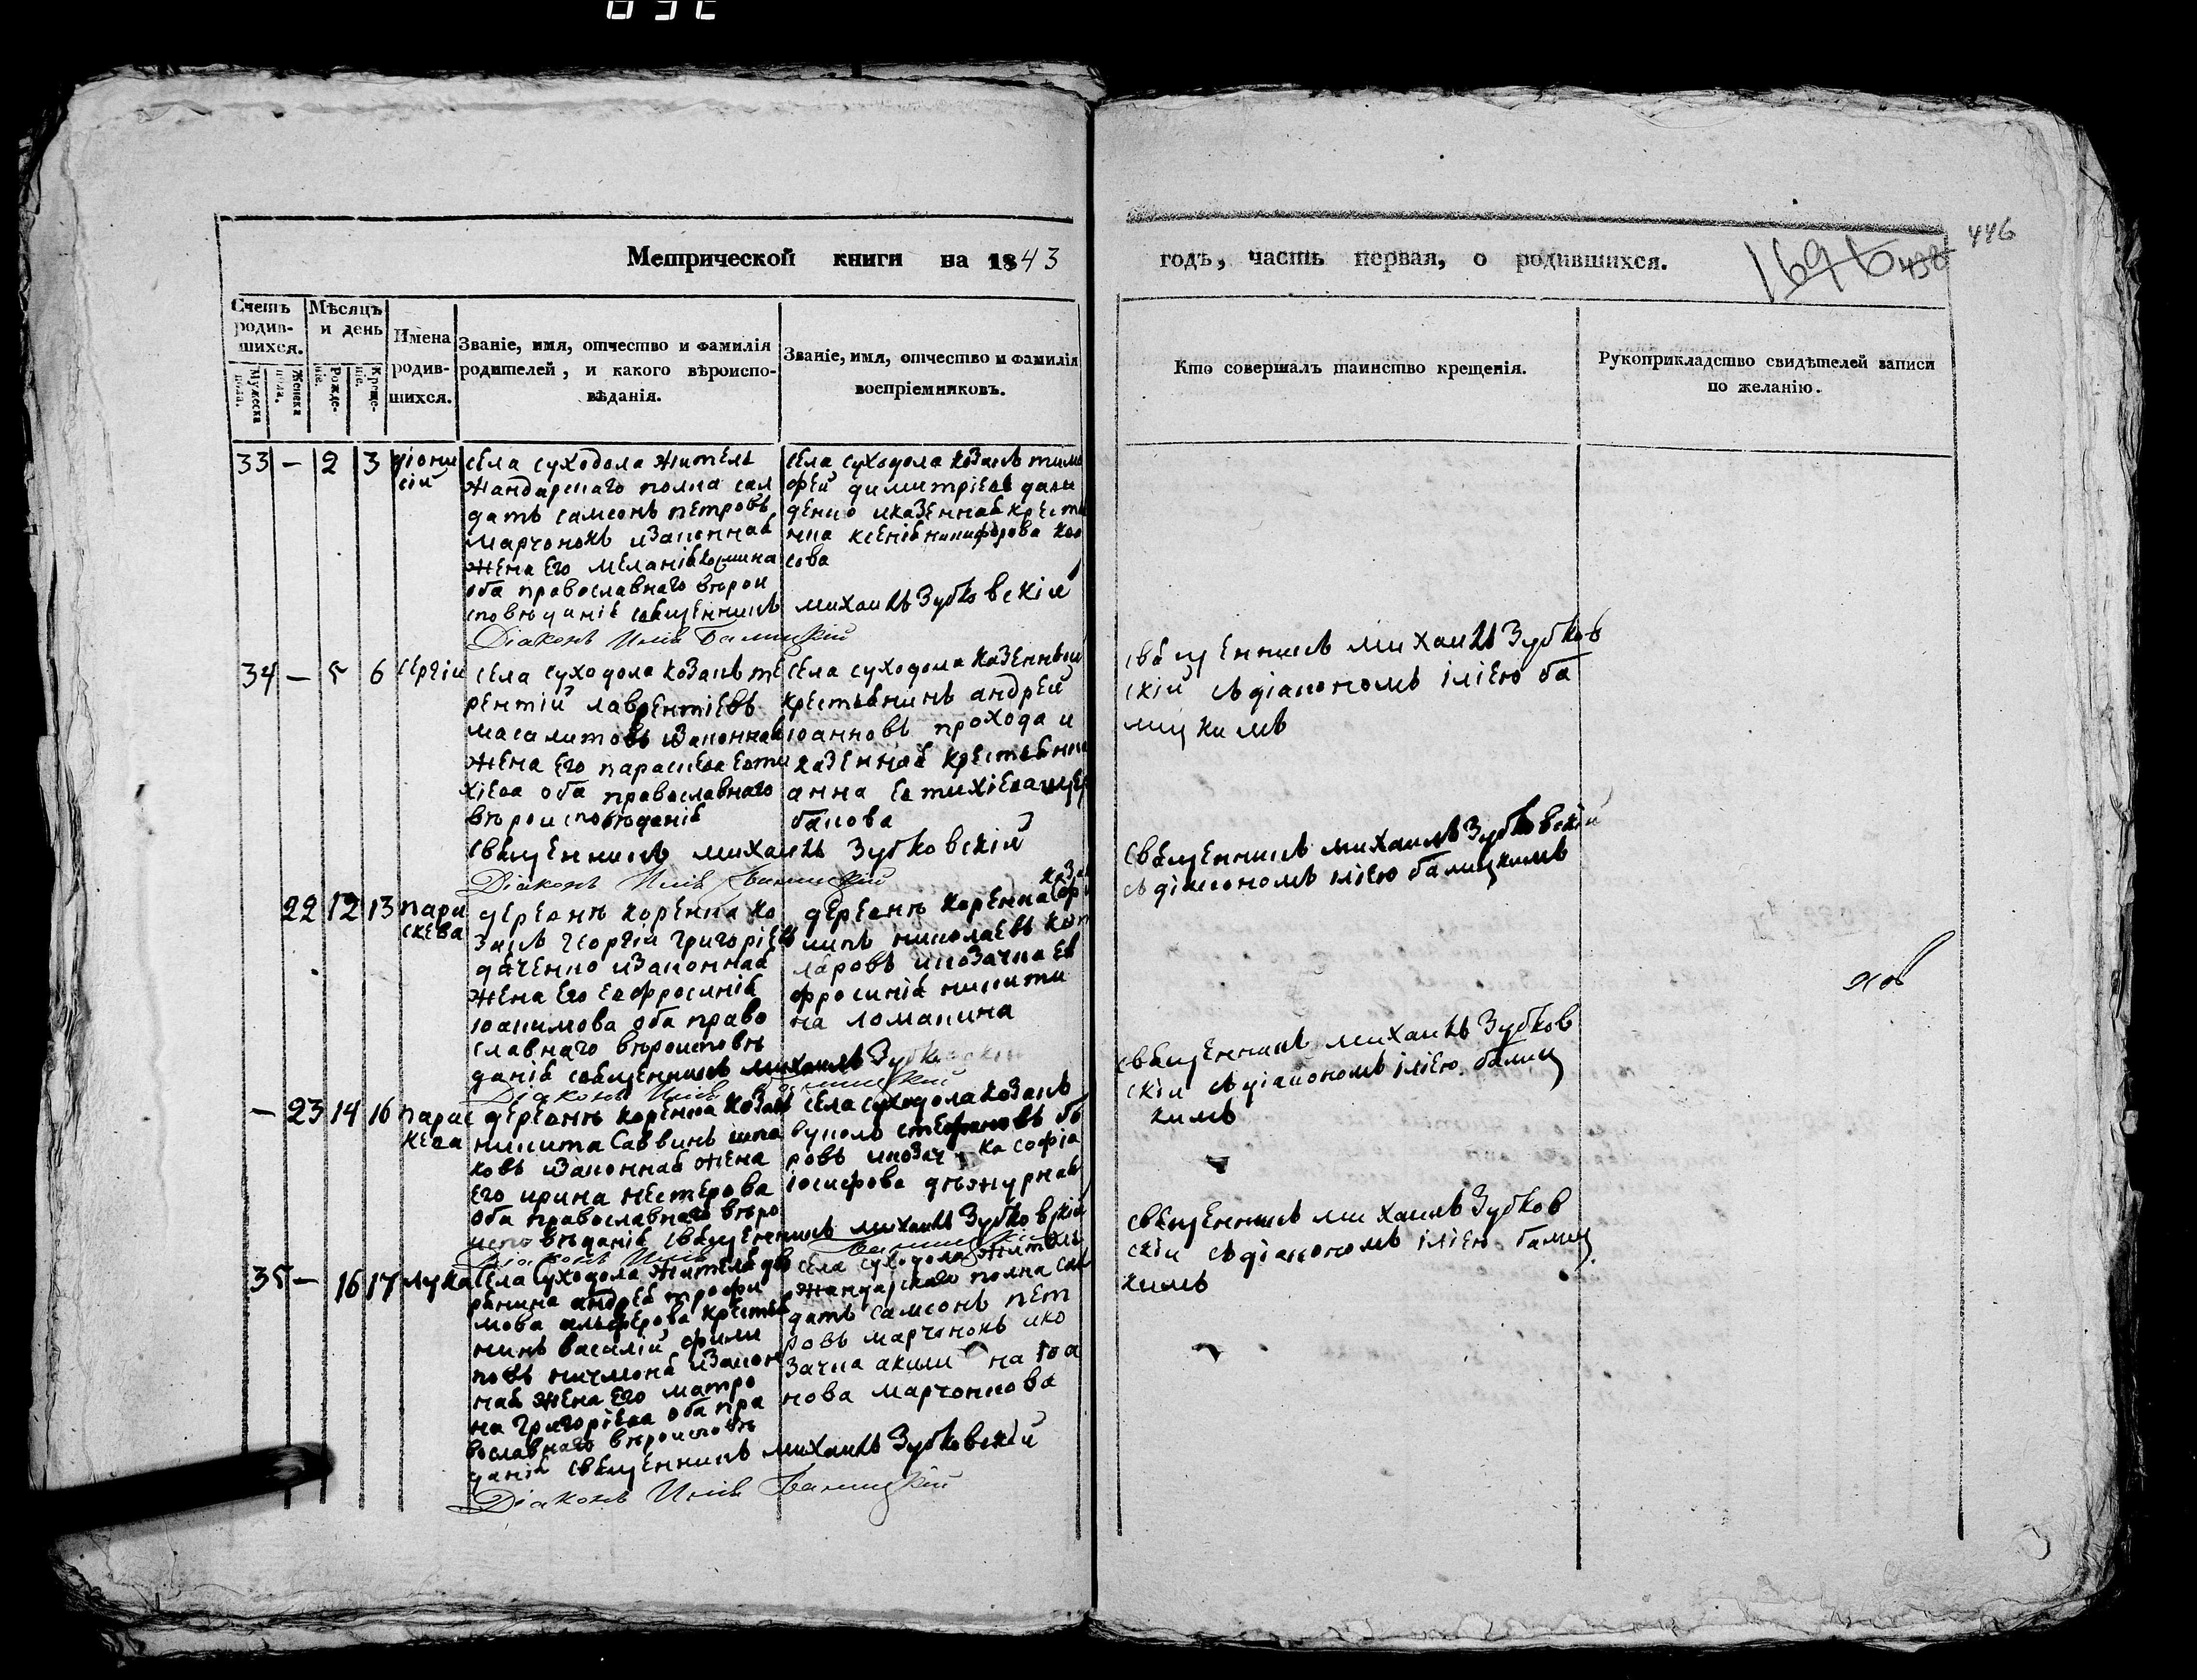 Метрической книги на 1843
годъ, часть первая, о родившихся.
446
Счетъ родив-шихся.
Мужеска пола.
Женска пола.
Мѣсяцъ и день
Рожде-ніе.
Креще-ніе.
Имена родив-шихся.
Званіе, имя, отчество и фамилія
родителей, и какого вѣроиспо-
вѣданія.
Званіе, имя, отчество и фамилія
воспріемниковъ.
Кто совершалъ таинство крещенія.
Рукоприкладство свидѣтелей записи
по желанію.
33 — 2 3 діони
сій
села суходола житель
жандарскаго полка сал
датъ самсонъ петровъ
марченокъ изаконная
жена его меланія
оба православнаго вѣрои
сповѣданія священникъ михаилъ Зубковскій
Діаконъ Илія Балицкій
села суходола козакъ тимо
фей димитріевъ дави
денко иказенная крестья
нка ксенія никифорова
сова
34 — 5 6 сергій
села суходола козакъ те
рентій лаврентіевъ
масалитовъ изаконная
жена его параскева евти
хіева оба православнаго
вѣроисповѣданія
священникъ михаилъ Зубковскій
Діаконъ Илія Балицкій
села суходола казенный
крестьянинъ андрей
іоанновъ прохода и
казенная крестьянка
анна евтихіева щер
бакова
священникъ михаилъ Зубков
скій съ діакономъ іліею ба
лицкимъ
22 12 13 пара
скева
деревни коренка ко
закъ георгій григоріевъ
дяченко изаконная
жена его евфросинія
іоакимова оба право
славнаго вѣроисповѣ
данія священникъ михаилъ Зубковскій
Діаконъ Илія Балицкій
деревни коренка
николаевъ
ляровъ икозачка ев
фросинія никити
на ломакина
священникъ михаилъ Зубковскій
съ діакономъ іліею балицкимъ
— 23 14 16 парас
кева
деревни коренка козакъ
никита саввинъ
ковъ изаконная жена
его ирина нестерова
оба православнаго вѣро
исповѣданія священникъ михаилъ Зубковскій
Діаконъ Илія Балицкій
села суходола козакъ
вуколъ стефановъ бо
ровъ икозачка софія
іосифова дѣжурная
священникъ михаилъ Зубков
скій съ діакономъ іліею балиц
кимъ
35 — 16 17 лука
села суходола жителя дво
рянина андрея трофи
мова алферова крестья
нинъ василій фили
повъ ничмоня изакон
ная жена его матро
на григоріева оба пра
вославнаго вѣроисповѣ
данія священникъ михаилъ Зубковскій
Діаконъ Илія Балицкій
села суходола житель
жандарскаго полка сал
датъ самсонъ пет
ровъ марченокъ ико
зачка акилина іоа
нова марченкова
священникъ михаилъ Зубков
скій съ діакономъ іліею балиц
кимъ